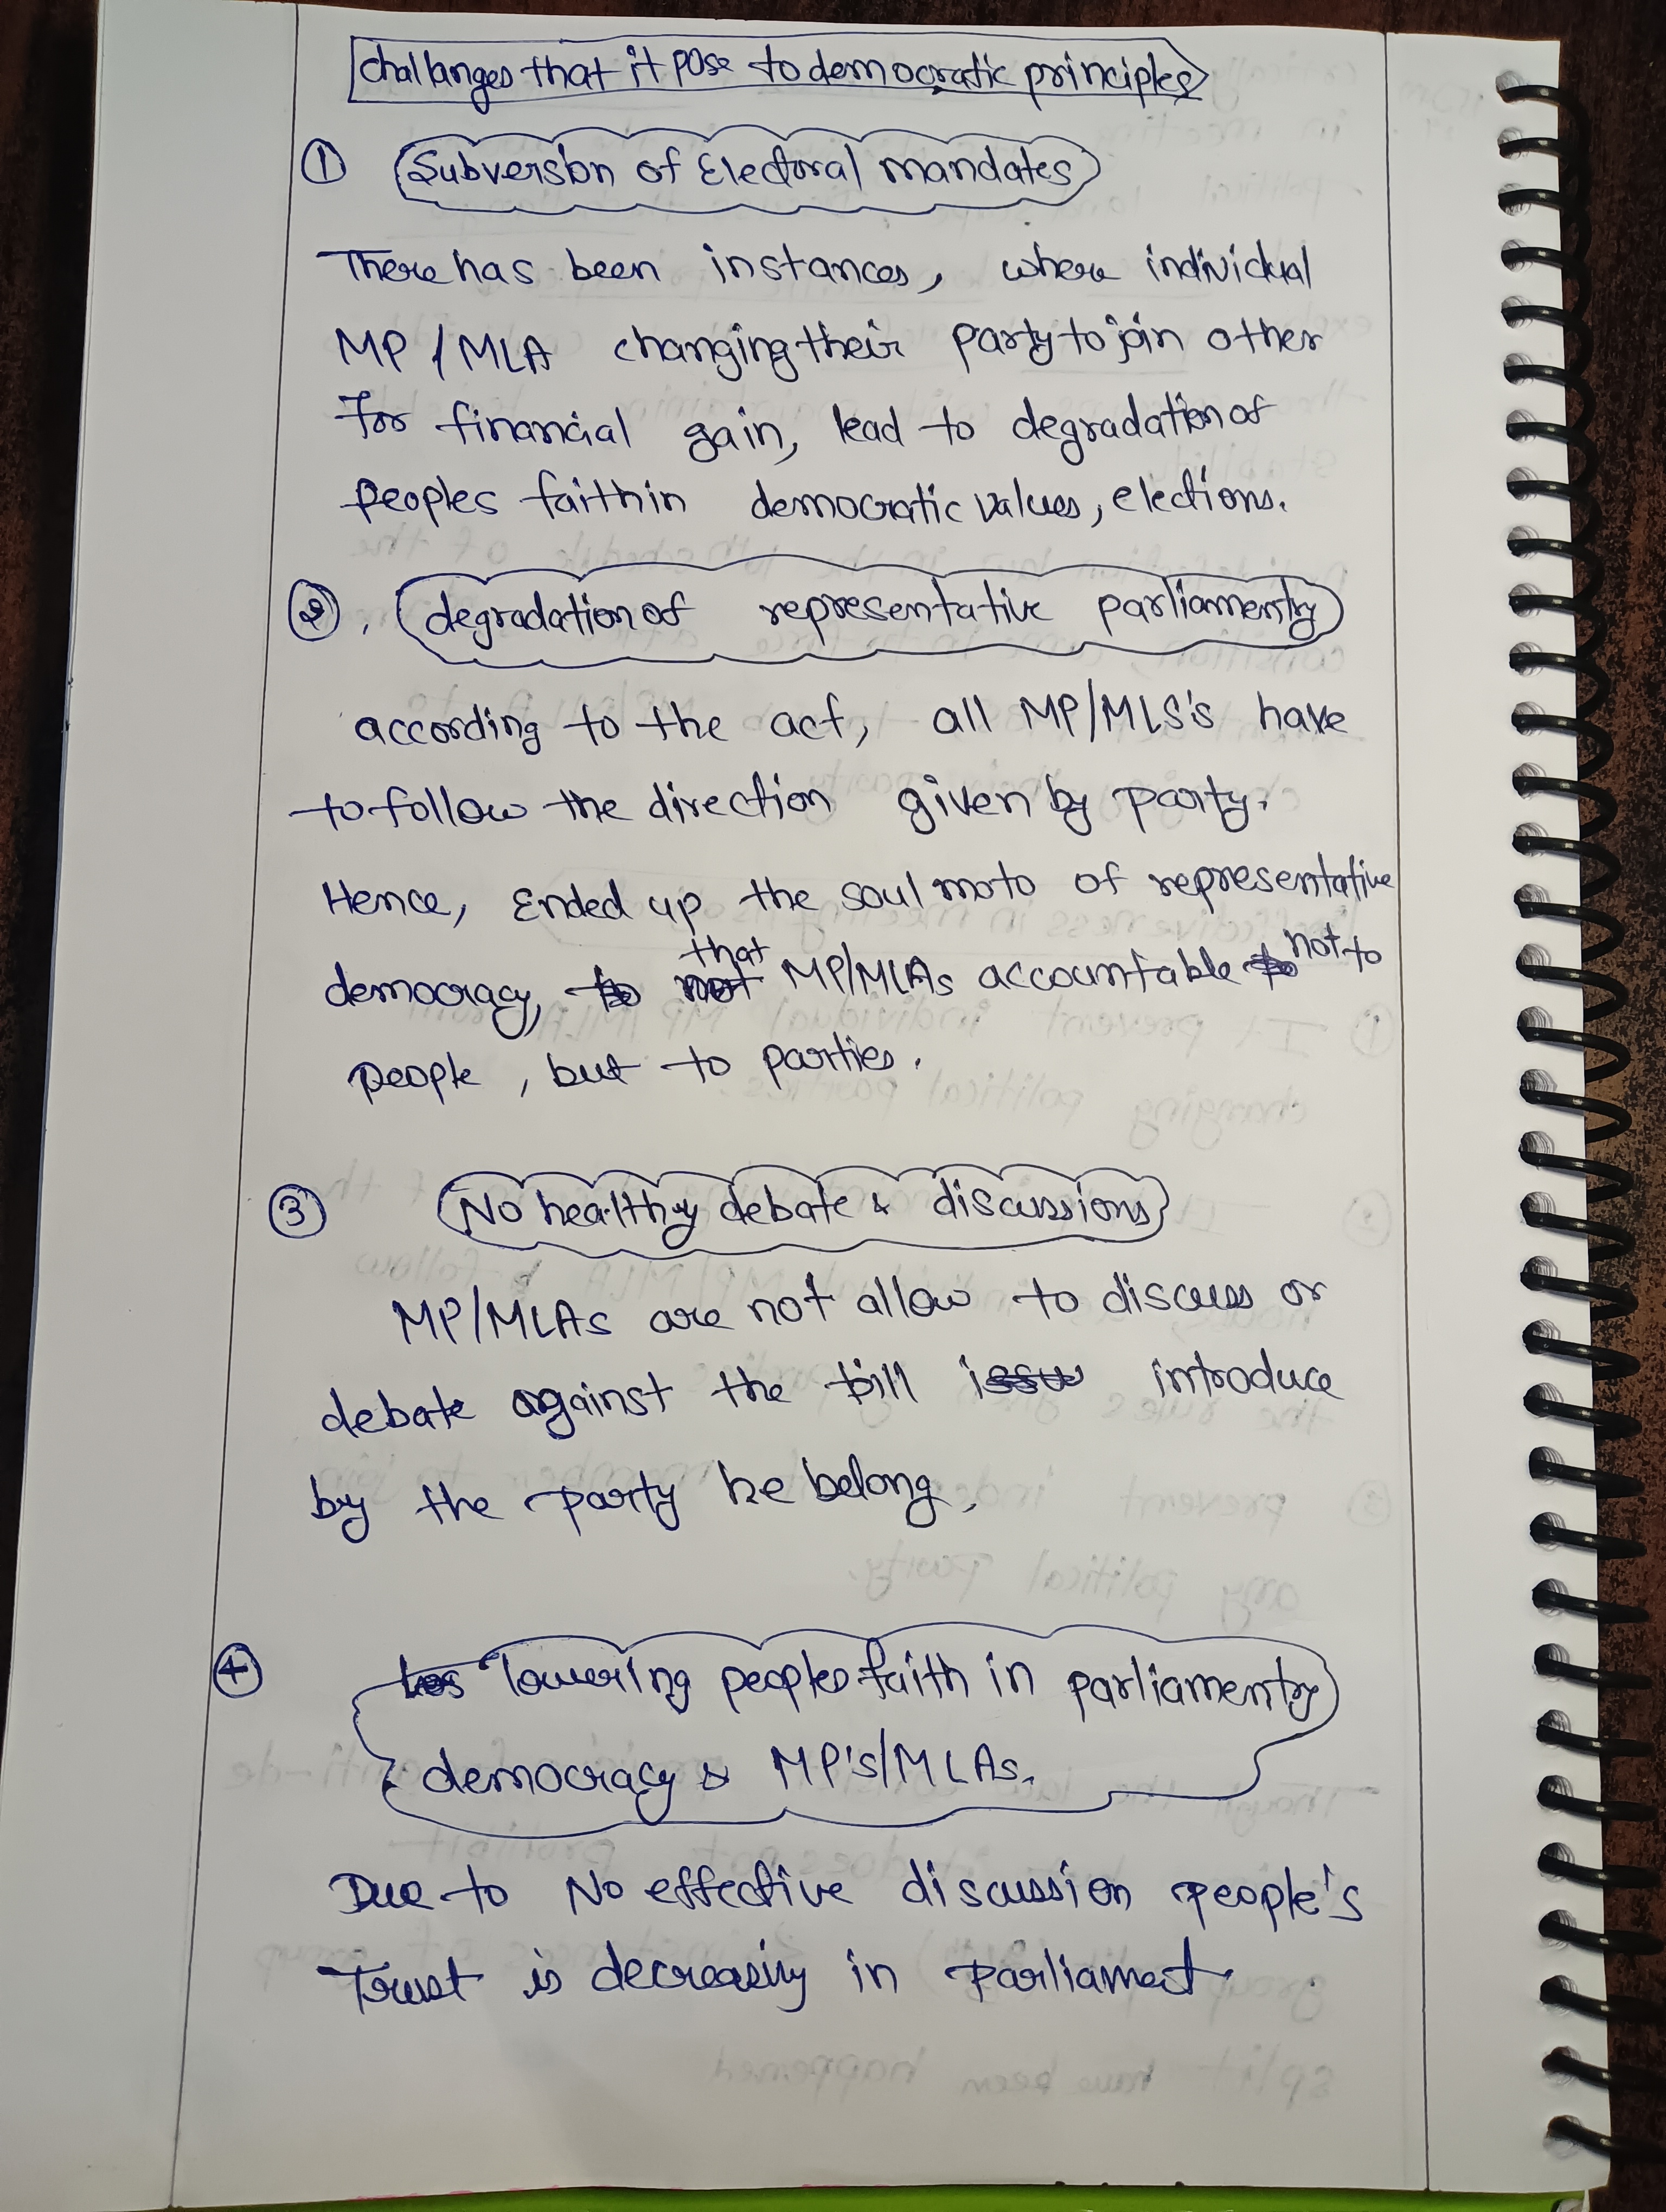 challanges that it pose to democratic principles
① Subversion of Electoral mandates
There has been instances, where individual
MP/MLA changing their party to join other
For financial gain, lead to degradation of
Peoples faith in democratic values, elections.
②. degradation of representative parliamentry
according to the act, all MP/MLS's have
to follow the direction given by party.
Hence, Ended up the soul moto of representative
democracy, that MP/MLAs accountable not to
people, but to parties.
③ No healthy debate & discussions
MP/MLAs are not allow to discuss or
debate against the bill introduce
by the party he belong.
④ lowering peoples faith in parliamentry
democracy & MP's/MLAs.
Due to No effective discussion people's
Trust is decreasing in Parliament